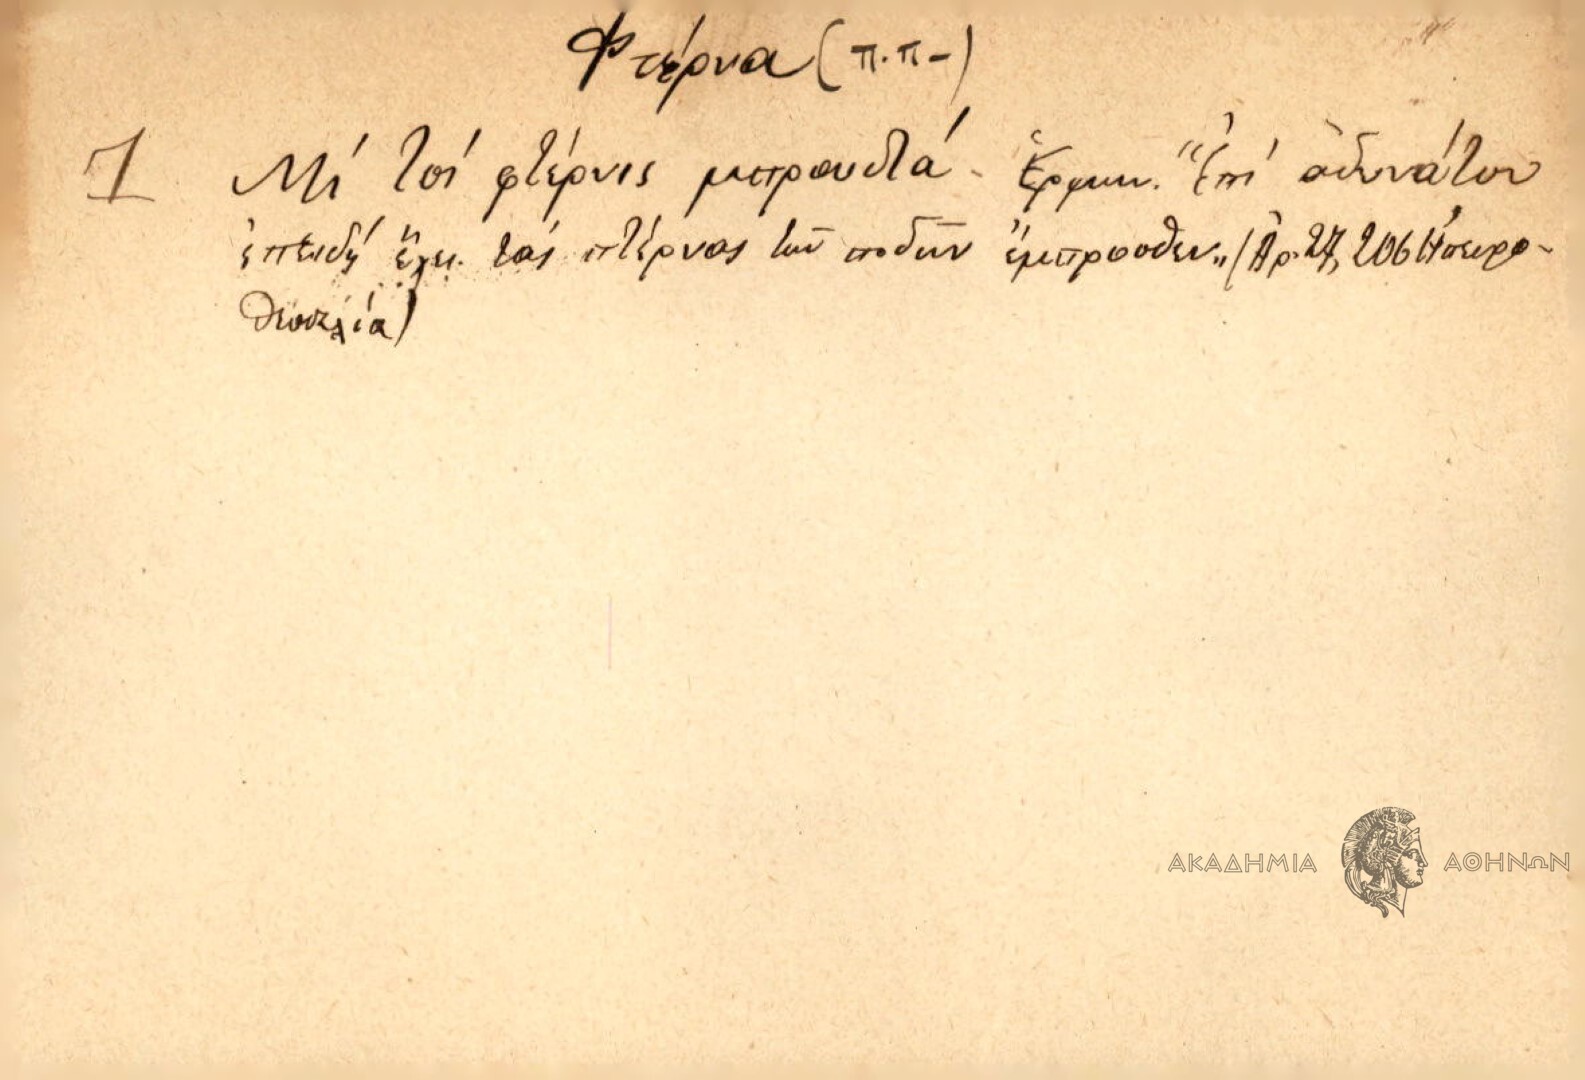 Φτέρνα (π.π-)
1 Μί τσί φτέρνις μπρουστά - Ἑρμην. "Ἐπί ἀδυνάτου
ἐπειδή ἔχει τάς πτέρνας τῶν ποδῶν ἔμπροσθεν„ (Ἀρ. 27, 206 Ἠπειρο-
θεσσαλία)
ΑΚΑΔΗΜΙΑ ΑΘΗΝΩΝ